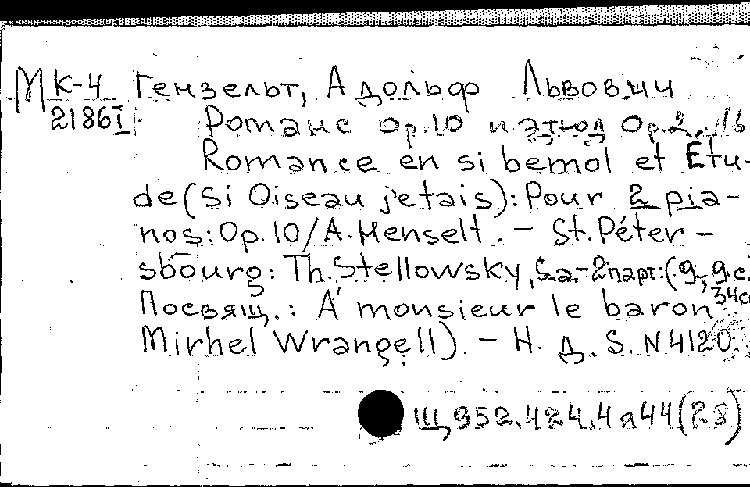 МК-4 Гензельт, Адольф Львович
2186I Романс Op.10 и этюд Op.2, 16
Romance en si bemol et Etu-
de (Si Oiseau j'etais): Pour 2 pia-
nos: Op.10/A.Henselt. – St.Péter-
sbourg: Th.Stellowsky, 2 парт: (9, 9 с.
Посвящ.: A monsieur le baron 34с
Mirhel Wrangell). – Н. д. S. N4120.
Щ952.424.4я44(28)